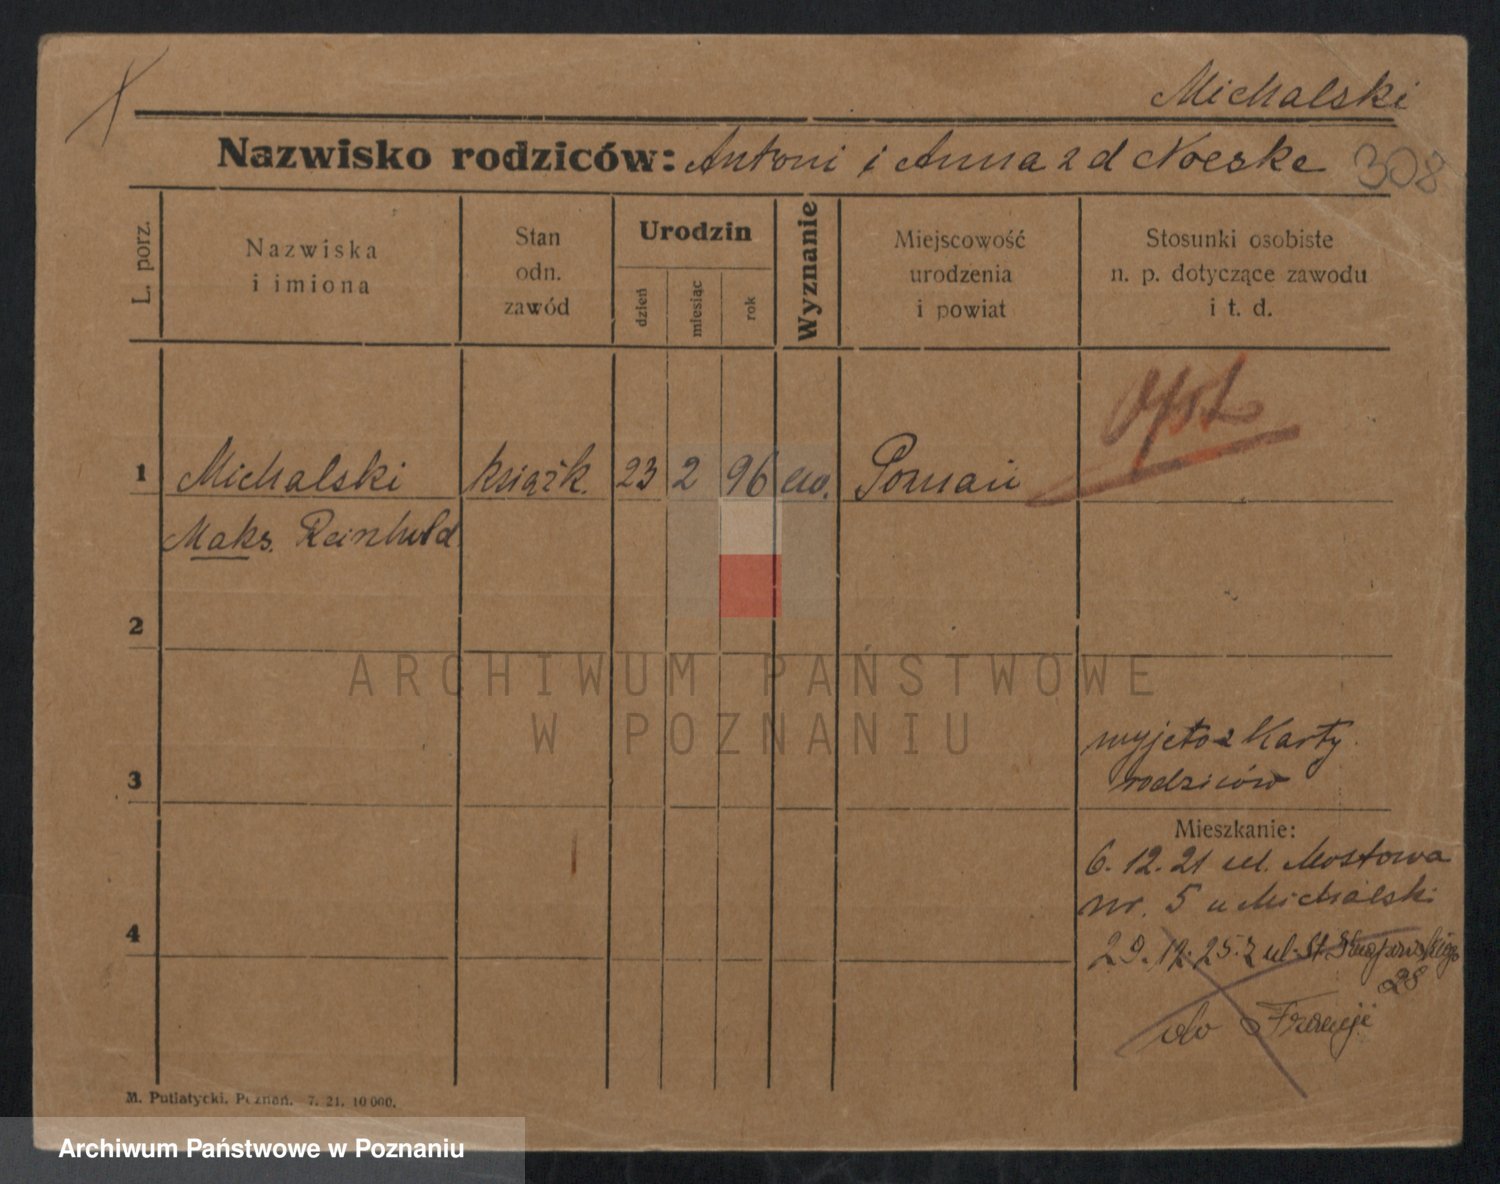 Michalski
Nazwisko rodziców: Antoni i Anna z d Noeske
308
L. porz.
Nazwiska
i imiona
Stan
odn.
zawód
Urodzin
dzień
miesiąc
rok
Wyznanie
Miejscowość
urodzenia
i powiat
Stosunki osobiste
n. p. dotyczące zawodu
i t. d.
1 Michalski książk. 23 2 96 ew. Poznań
Maks. Reinhold
2
ARCHIWUM PAŃSTWOWE
W POZNANIU
wyjęto z Karty
rodziców
3
Mieszkanie:
6.12.21 ul. Mostowa
nr. 5 u Michalski
4
29.12.25. z ul. St.
28
do Francji
M. Putiatycki, Poznań. 7. 21. 10 000.
Archiwum Państwowe w Poznaniu